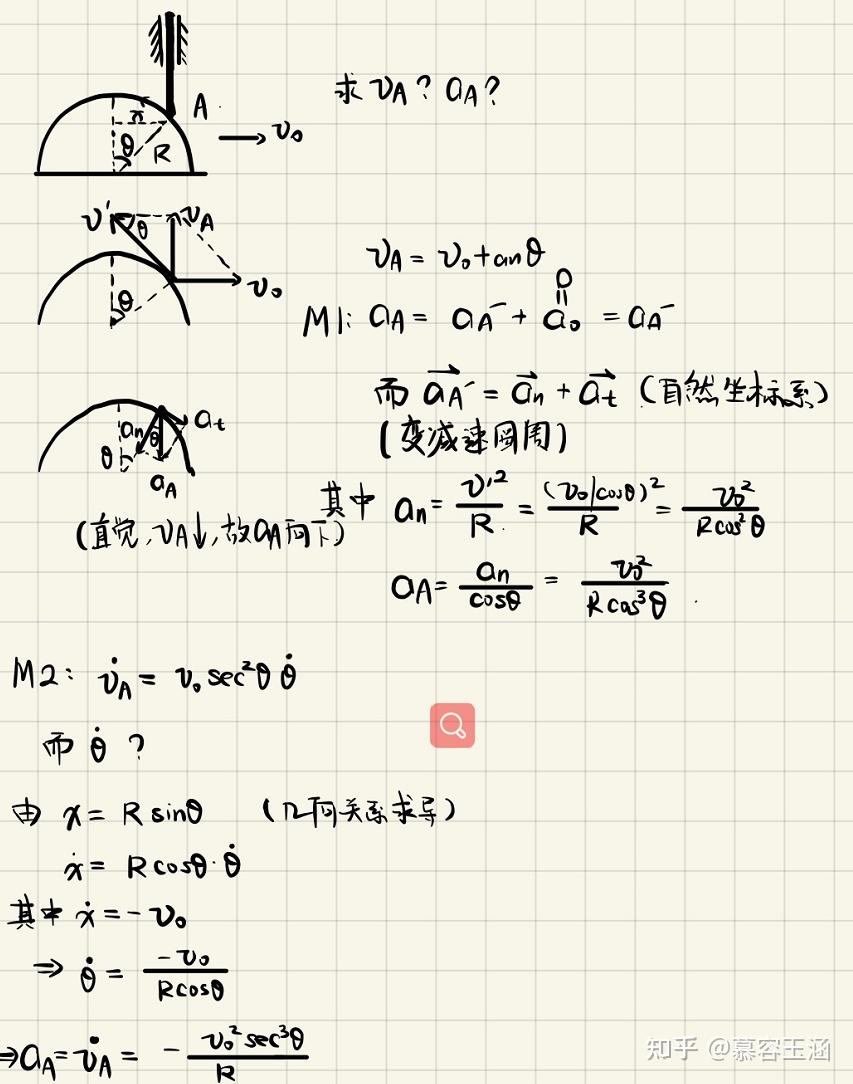 A
x
θ
R
v₀
求 v_A? a_A?
v'
θ
v_A
θ
v₀
v_A = v₀tanθ
0
||
M1: a_A = a_A⁻ + a₀ = a_A⁻
a_n
θ
a_t
θ
a_A
而 a_A⁻ = a_n + a_t (自然坐标系)
(变减速圆周)
(直觉, v_A↓, 故a_A向下)
其中 a_n = v'²/R = (v₀/cosθ)²/R = v₀²/Rcos²θ
a_A = a_n/cosθ = v₀²/Rcos³θ.
M2: v̇_A = v₀ sec²θ θ̇
而 θ̇ ?
由 x = R sinθ (几何关系求导)
ẋ = Rcosθ·θ̇
其中 ẋ = -v₀
⇒ θ̇ = -v₀/Rcosθ
⇒ a_A = v̇_A = - v₀²sec³θ/R
知乎 @慕容玉涵